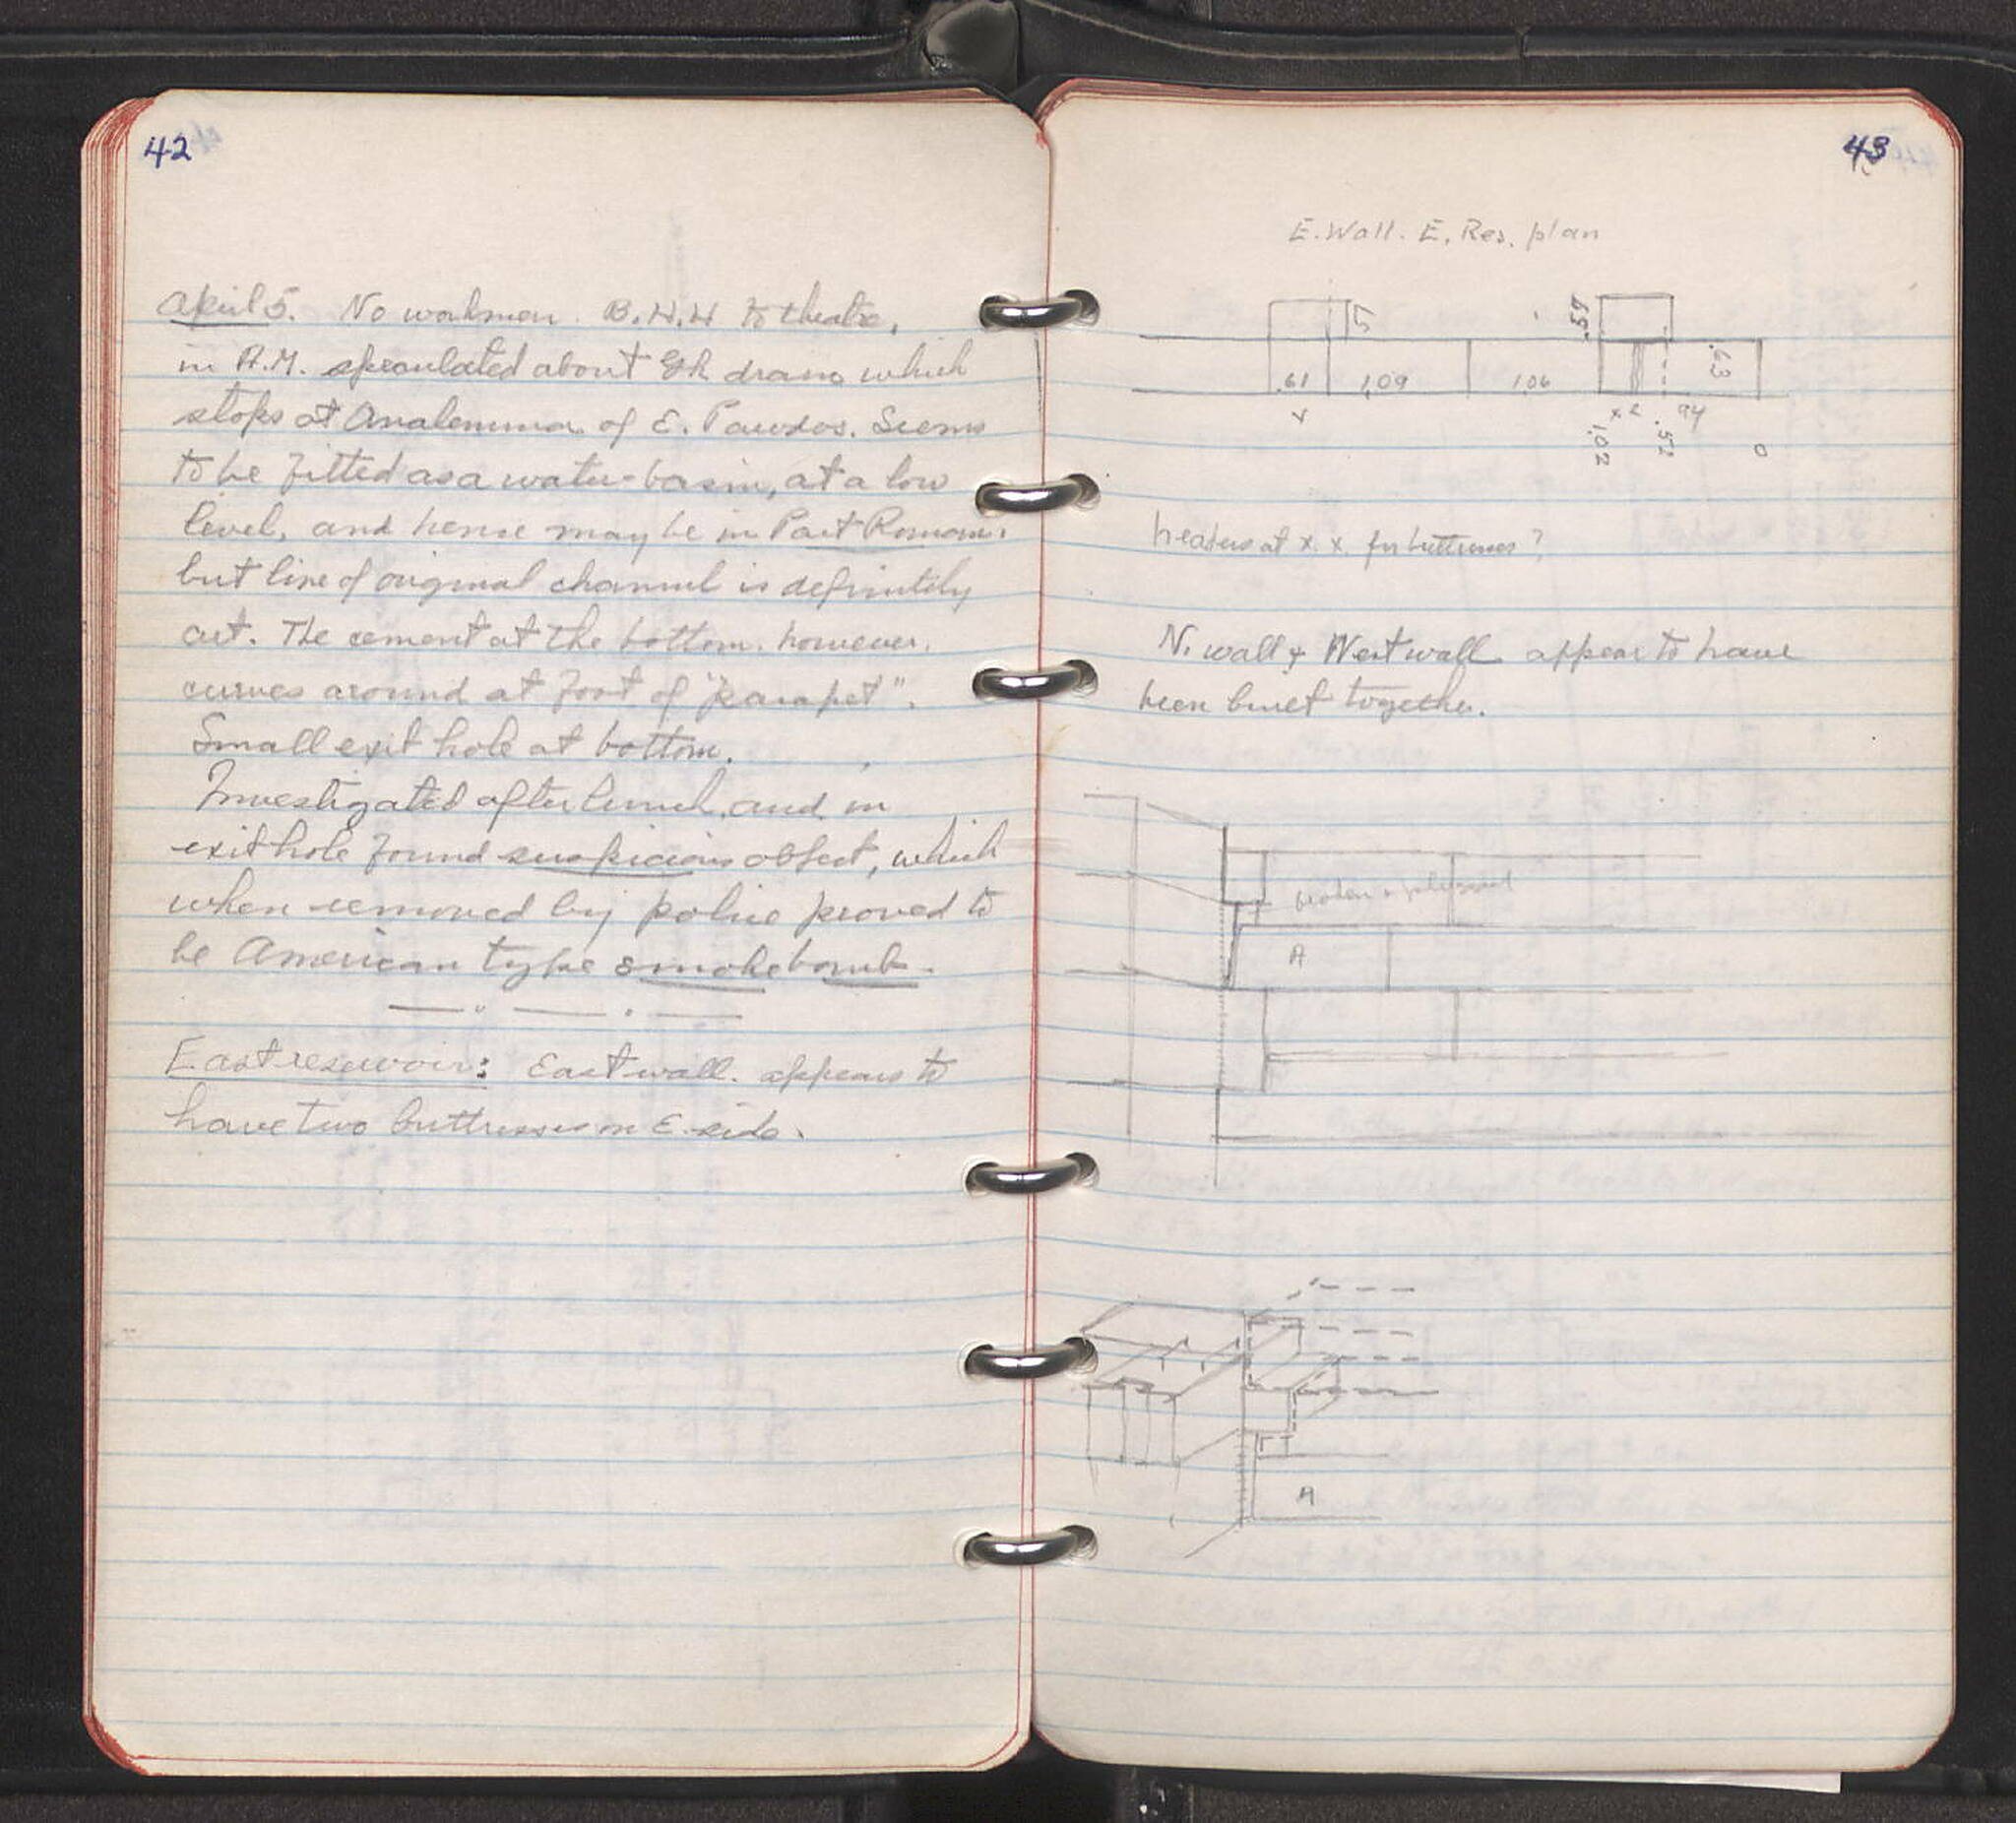 42
April 5. No workmen. B.H.H to theatre,
in A.M. speculated about Gk drain which
stops at Analemma of E. Parodos. Seems
to be fitted as a water-basin, at a low
level, and hence may be in Part Roman.
but line of original channel is definitely
cut. The cement at the bottom, however,
curves around at foot of "parapet".
Small exit hole at bottom.
Investigated after lunch, and in
exit hole found suspicious object, which
when removed by police proved to
be American type smokebomb.
East reservoir: East wall. appears to
have two buttresses on E. side.
43
E. Wall. E. Res. plan
.57
.63
.61 1.09 1.06
x x .94
1.02 .52 0
headers at x. x. for buttresses?
N. wall & West wall appear to have
been built together.
broken &
A
A